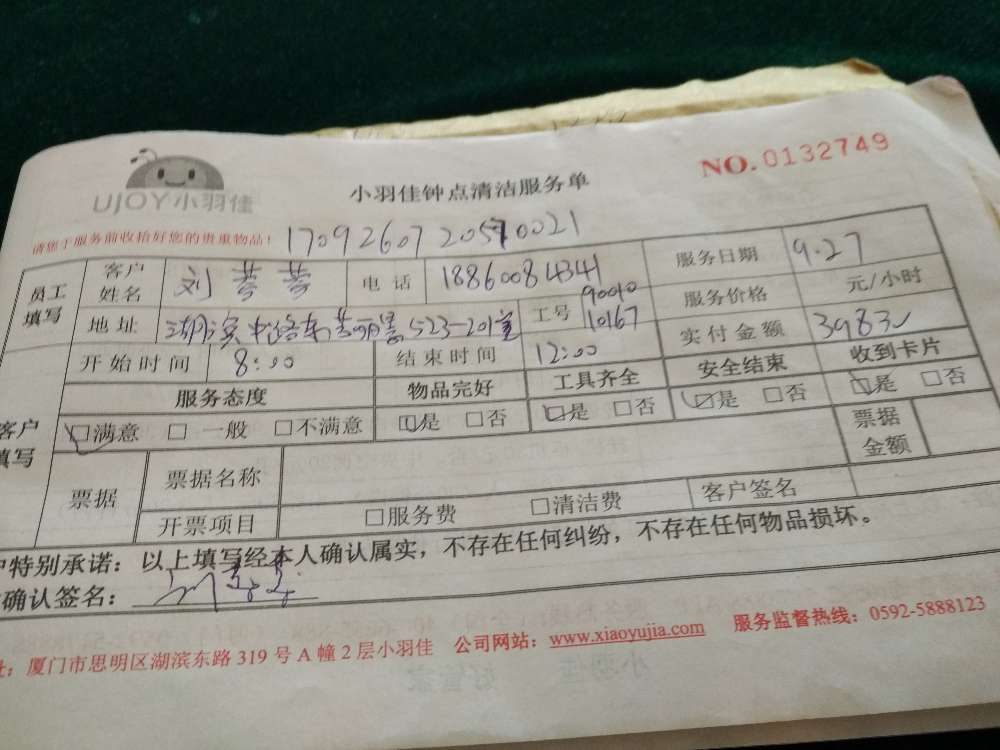 UJOY小羽佳
小羽佳钟点清洁服务单
NO.0132749
请您于服务前收拾好您的贵重物品!
员工填写 客户姓名 刘 电话 18860084341 服务日期 9.27
服务价格 元/小时
地址 湖滨中路东 523-201室 工号 90010 10167
实付金额
开始时间 8:00 结束时间 12:00
客户填写 服务态度 物品完好 工具齐全 安全结束 收到卡片
□满意 □一般 □不满意 □是 □否 □是 □否 □是 □否 □是 □否
票据 票据名称 票据金额
开票项目 □服务费 □清洁费 客户签名
户特别承诺：以上填写经本人确认属实，不存在任何纠纷，不存在任何物品损坏。
确认签名：
址：厦门市思明区湖滨东路319号A幢2层小羽佳 公司网站：www.xiaoyujia.com 服务监督热线：0592-5888123